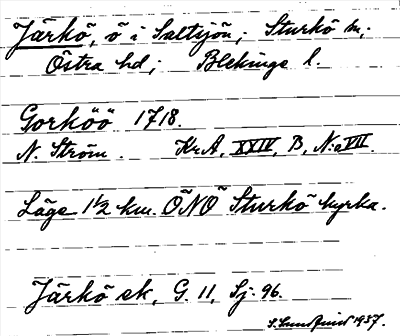 Järkö, ö i Saltsjön; Sturkö sn;
Östra hd; Blekinge l.
Gorköö 1718.
N. Ström. Kr.A, XXIV, B, N:o VII.
Läge 1½ km. ÖNÖ Sturkö kyrka.
Järkö ek, G. 11, Sj. 96.
S. Lundquist 1937.